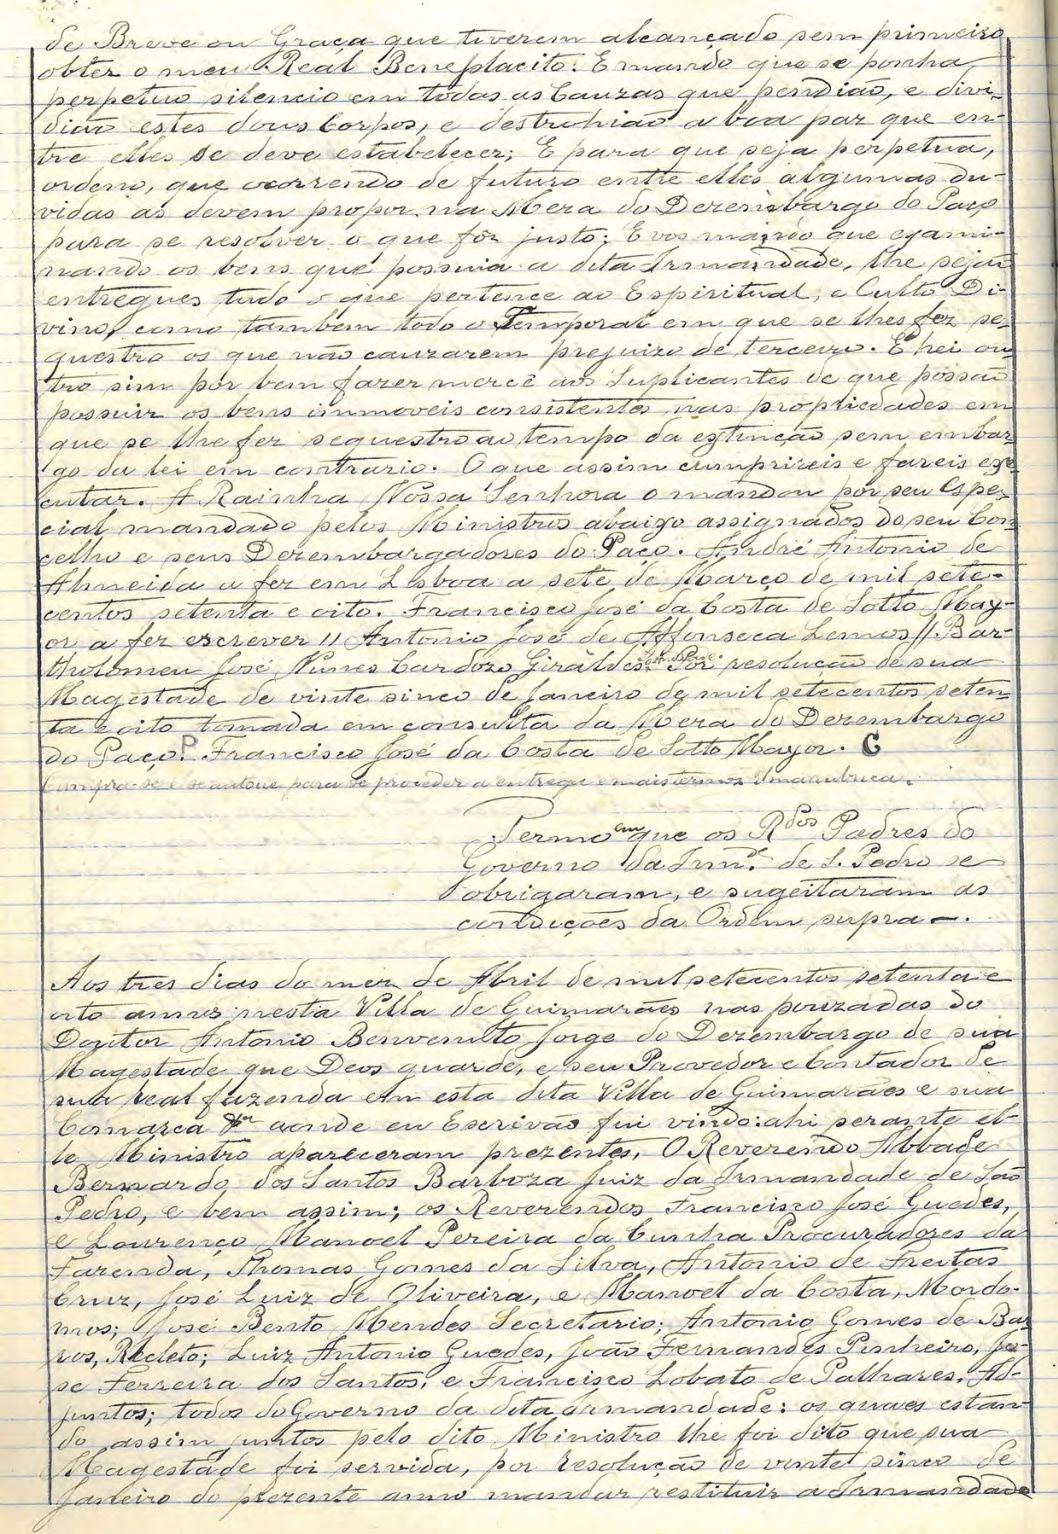 de Breve ou Graça que tiverem alcançado sem primeiro
obter o meu Real Beneplacito. E mando que se ponha
perpetuo silencio em todas as Cauzas que pendião, e divi-
dião estes dous Corpos, e destruhião a boa paz que en-
tre elles se deve estabelecer; E para que seja perpetua,
ordeno, que ocorrendo de futuro entre elles algumas du-
vidas as devem propor na Meza do Dezembargo do Paço
para se resolver o que fôr justo; E vos mando que exami-
nando os bens que possuia a dita Irmandade, lhe sejão
entregues tudo o que pertence ao Espiritual, e Culto Di-
vino, como tambem todo o Temporal em que se lhes fez se-
questro os que não cauzarem prejuizo de terceiro. E hei ou-
tro sim por bem fazer mercê aos Suplicantes de que possão
possuir os bens immoveis consistentes nas propriedades em
que se lhe fez sequestro ao tempo da extinção sem embar-
go da lei em contrario. O que assim cumprireis e fareis exe-
cutar. A Rainha Nossa Senhora o mandou por seu Espe-
cial mandado pelos Ministros abaixo assignados do seu Con-
celho e seus Dezembargadores do Paço. André Antonio de
Almeida a fez em Lisboa a sete de Março de mil sete-
centos setenta e oito. Francisco José da Costa de Sotto May-
or a fez escrever // Antonio José de Affonseca Lemos // Bar-
tholomeu José Nunes Cardozo Giraldes. Por resolução de sua
Magestade de vinte sinco de Janeiro de mil setecentos seten-
ta e oito tomada em consulta da Meza do Dezembargo
do Paço. P Francisco José da Costa de Sotto Mayor. C
Cumpra-se e se autoue para se proceder a entrega e mais termos Uma rubrica.
Termo em que os R.dos Padres do
Governo da Irm.e de S. Pedro se
obrigaram, e sugeitaram as
condições da Ordem supra —.
Aos tres dias do mez de Abril de mil setecentos setenta e
oito annos nesta Villa de Guimarães nas pouzadas do
Doutor Antonio Benvenuto Jorge do Dezembargo de sua
Magestade que Deos guarde, e seu Provedor e Contador de
sua real fazenda em esta dita Villa de Guimarães e sua
Comarca aonde eu Escrivão fui vindo: ahi perante el-
le Ministro apareceram prezentes, O Reverendo Abbade
Bernardo dos Santos Barboza Juiz da Irmandade de São
Pedro, e bem assim; os Reverendos Francisco José Guedes,
e Lourenço Manoel Pereira da Cunha Procuradores da
Fazenda, Thomas Gomes da Silva, Antonio de Freitas
Cruz, José Luiz de Oliveira, e Manoel da Costa, Mordo-
mos; José Bento Mendes Secretario; Antonio Gomes de Bar-
ros, Recleto; Luiz Antonio Guedes, João Fernandes Pinheiro, Jo-
se Ferreira dos Santos, e Francisco Lobato de Palhares, Ad-
juntos; todos do Governo da dita Irmandade: os quaes estan-
do assim juntos pelo dito Ministro lhe foi dito que sua
Magestade foi servida, por resolução de vinte sinco de
Janeiro do prezente anno mandar restituir a Irmandade